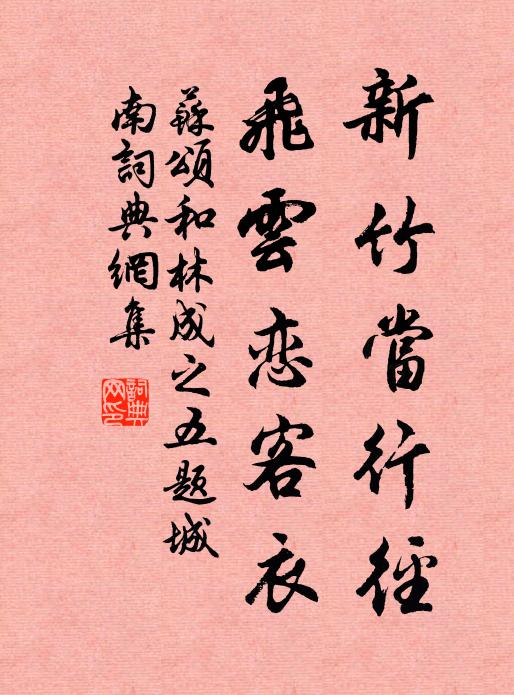 新竹當行徑
飛雲恋客衣
蘇頌和林成之五题城
南詞典網集
詞典
网印